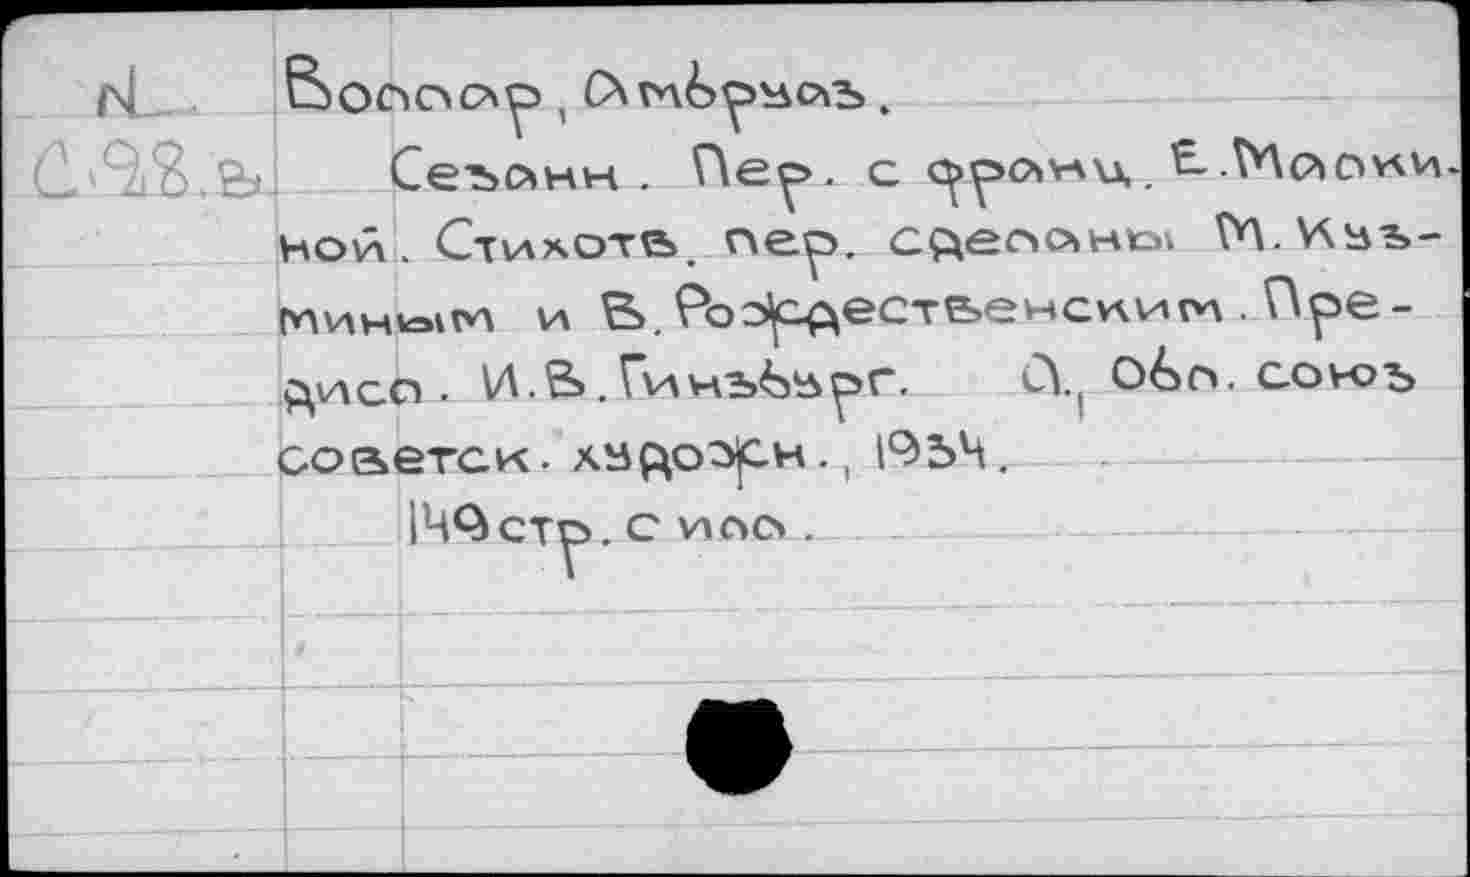 N Воллар, Амбруаз.
С.98.в. Сезанн. Пер. с франц. Е. Малки-
ной. Стихотв. пер. сделаны М. Куз-
миным и В. Рождественским. Пре-
дисл. И.В. Гинзбург. Л., Обл. союз
советск. художн., 1934.
149 стр. с илл.